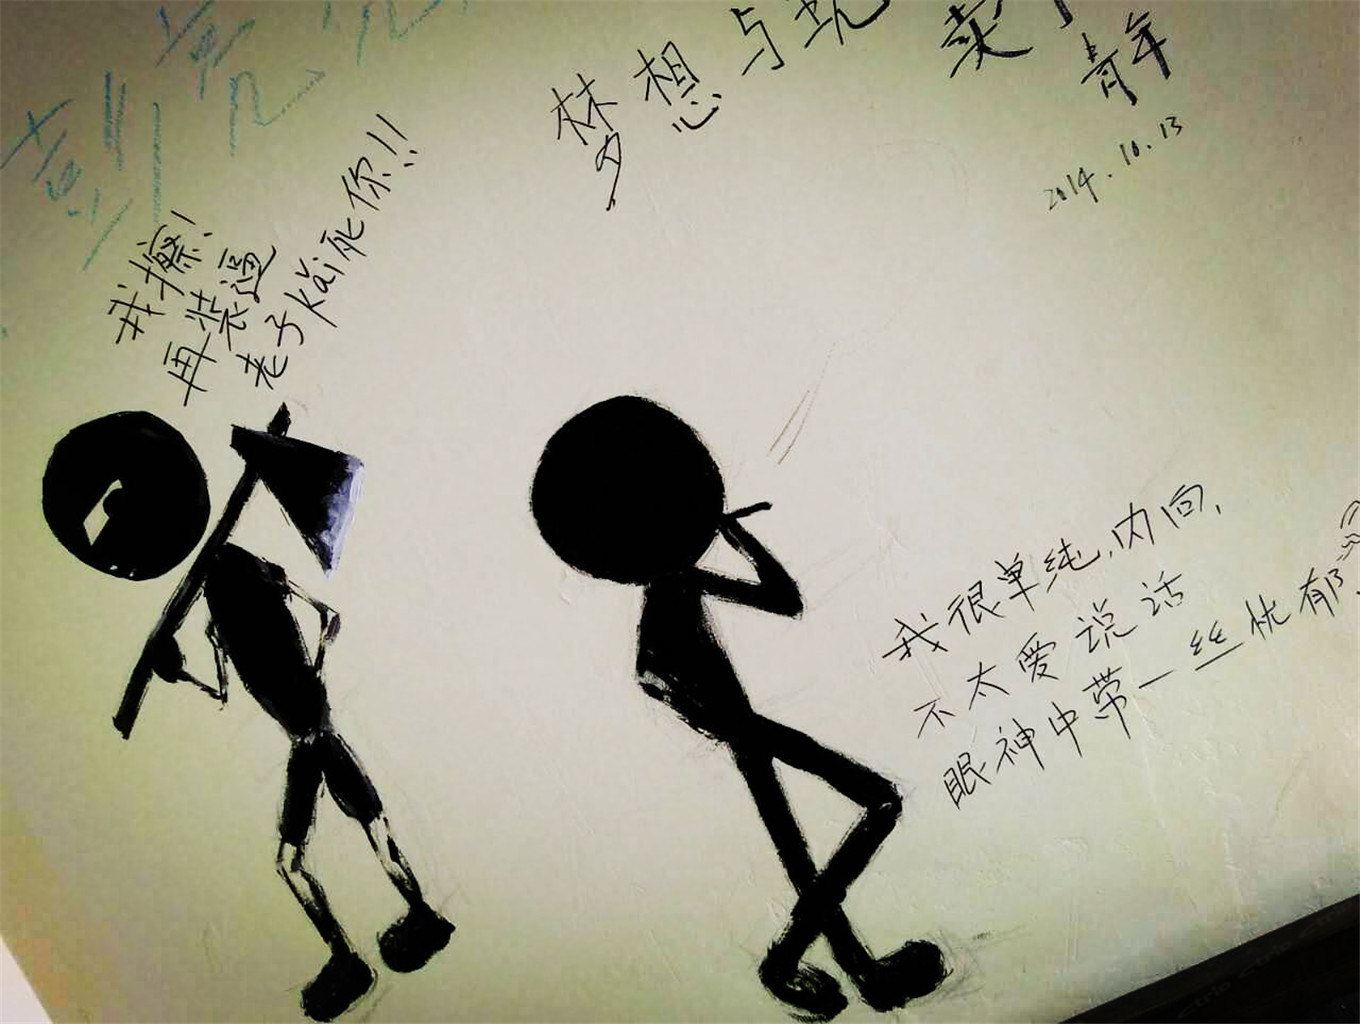 梦想与现
卖
青年
2014.10.13
我擦!
再装逼
老子kǎi死你!!
我很单纯,内向,
不太爱说话
眼神中带一丝忧郁